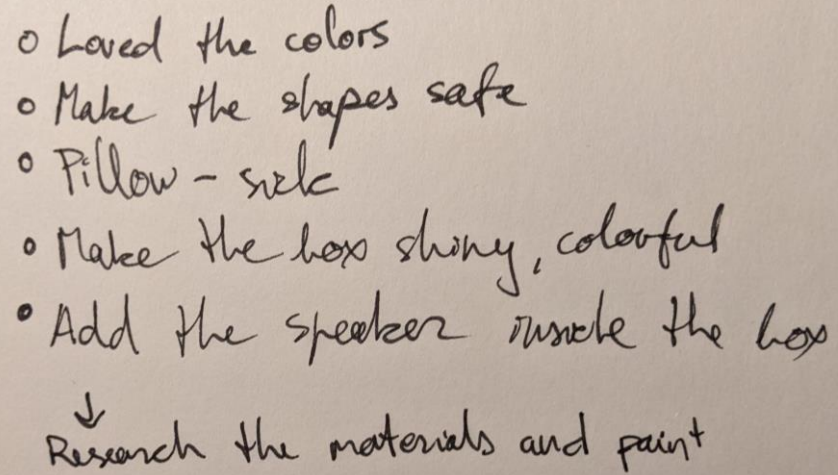 o Loved the colors
o Make the shapes safe
o Pillow -
o Make the box shiny, colorful
• Add the speaker inside the box
↓
Research the materials and paint